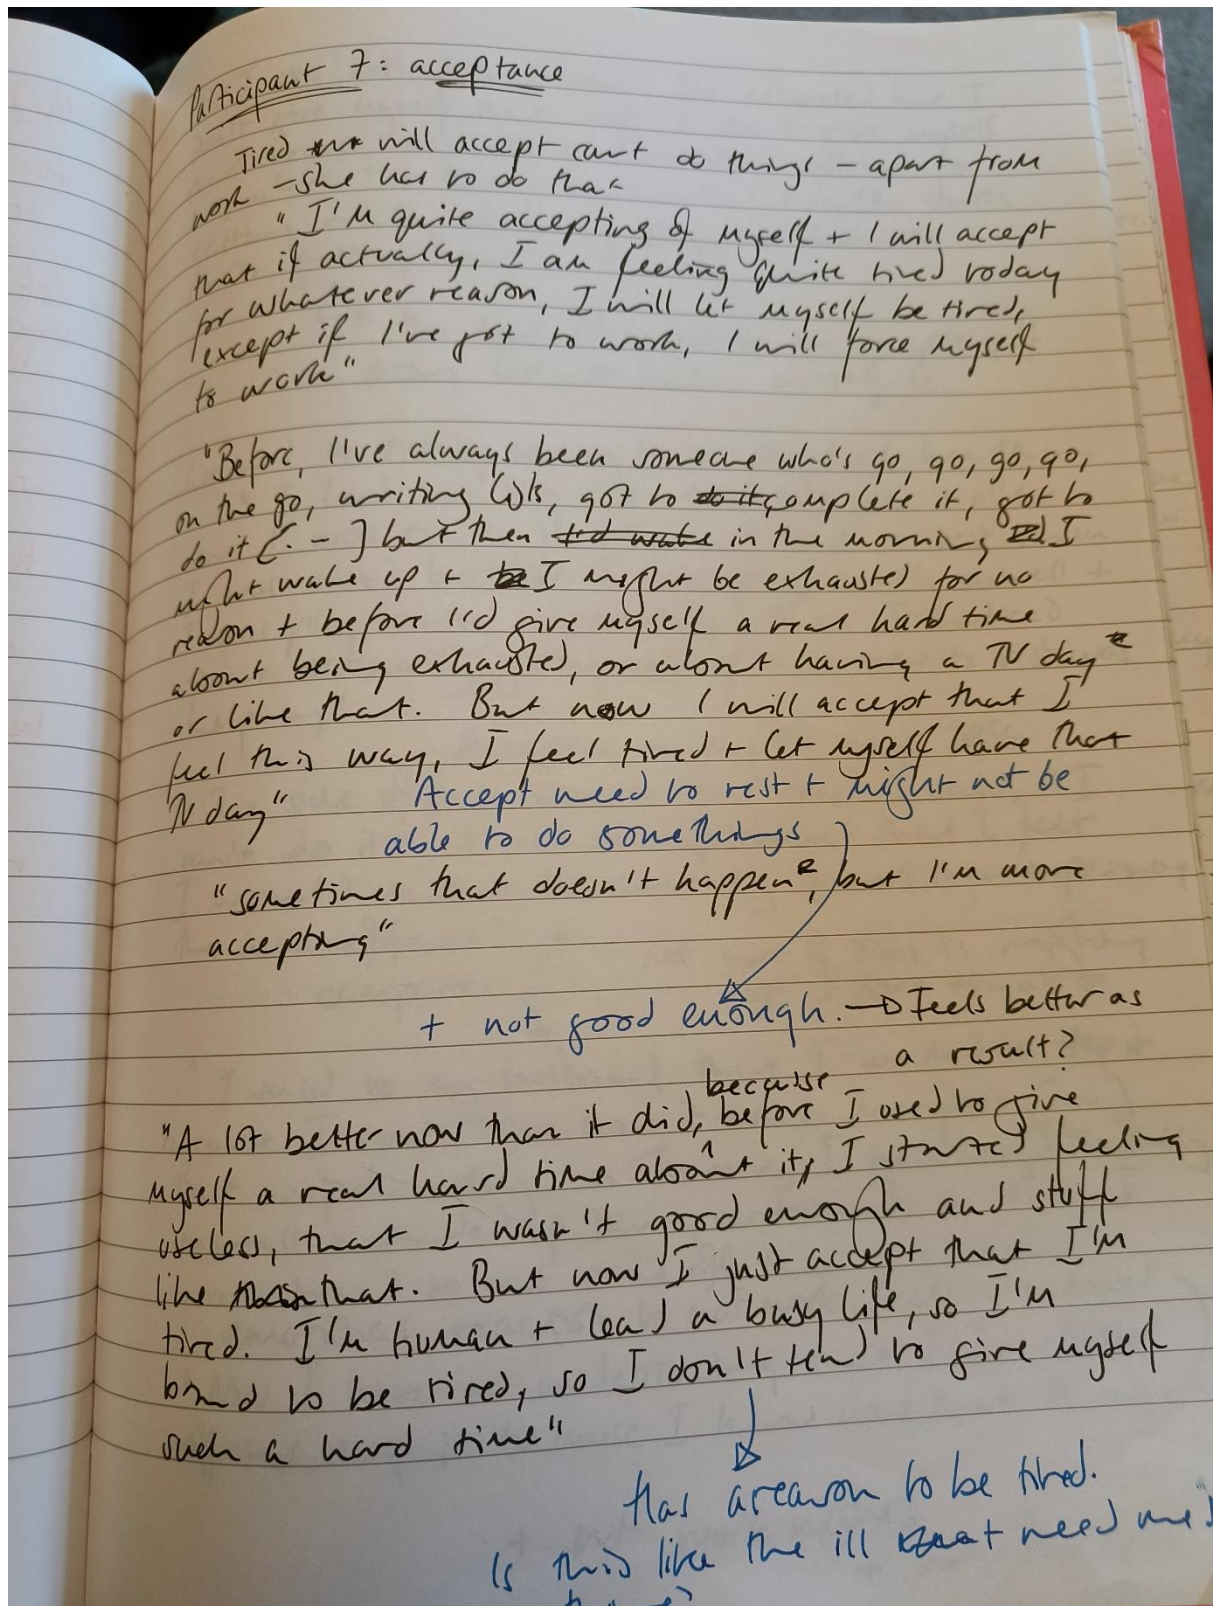 Participant 7: acceptance
Tired will accept can't do things - apart from
work - she has to do that
"I'm quite accepting of myself + I will accept
that if actually, I am feeling quite tired today
for whatever reason, I will let myself be tired,
except if I've got to work, I will force myself
to work"
"Before, I've always been someone who's go, go, go, go,
on the go, writing lists, got to do it, complete it, got to
do it [. - ] but then I'd wake in the morning, I
might wake up + I might be exhausted for no
reason + before I'd give myself a real hard time
about being exhausted, or about having a TV day
or like that. But now I will accept that I
feel this way, I feel tired + let myself have that
TV day"
Accept need to rest + might not be
able to do somethings
"sometimes that doesn't happen, but I'm more
accepting"
+ not good enough. → Feels better as
a result?
because
"A lot better now than it did, before I used to give
myself a real hard time about it, I started feeling
useless, that I wasn't good enough and stuff
like that. But now I just accept that I'm
tired. I'm human + lead a busy life, so I'm
bound to be tired, so I don't tend to give myself
such a hard time"
Has a reason to be tired.
Is this like the ill need